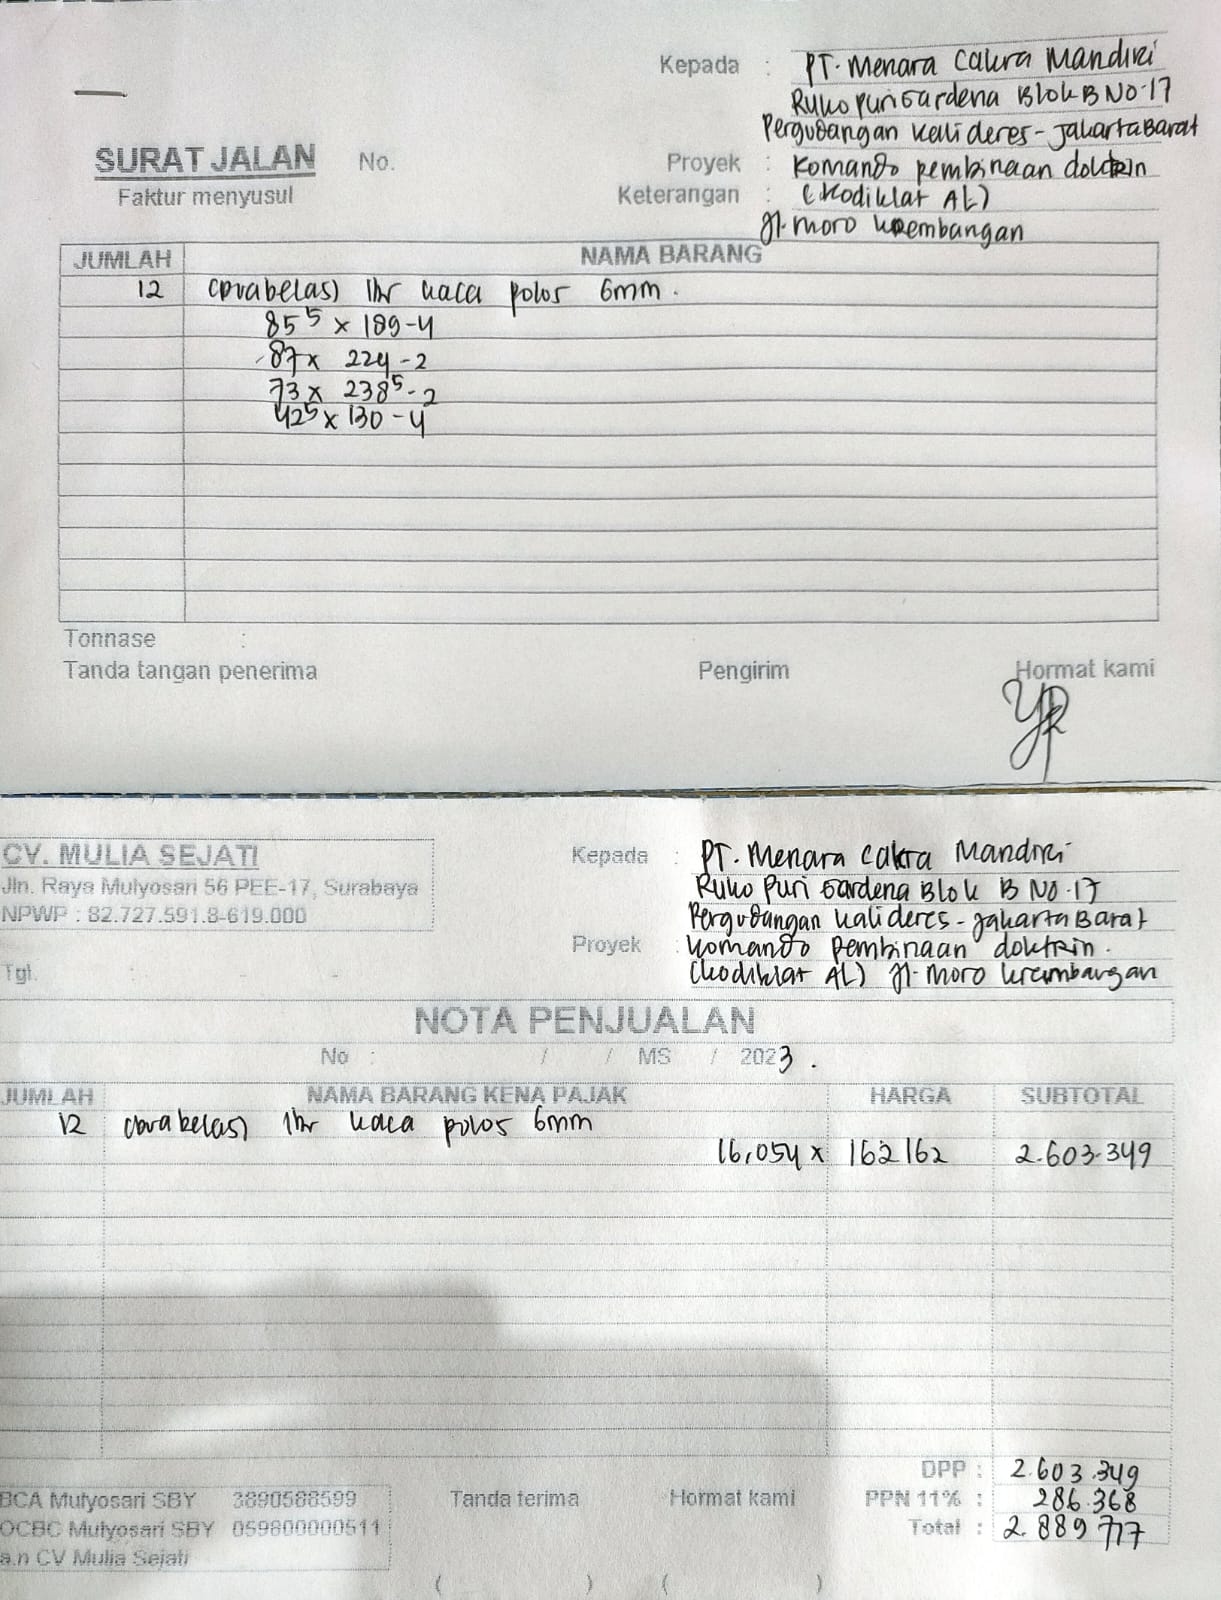 Kepada : PT. Menara Cakra Mandiri
Ruko Puri Gardena Blok B No. 17
Pergudangan Kalideres - Jakarta Barat
SURAT JALAN No.
Faktur menyusul
Proyek : Komando pembinaan doktrin
Keterangan : (Kodiklat AL)
Jl. Moro Krembangan
JUMLAH NAMA BARANG
12 (Duabelas) lbr kaca polos 6mm.
85⁵ x 189 - 4
87 x 224 - 2
73 x 238⁵ - 2
42⁵ x 130 - 4
Tonnase :
Tanda tangan penerima Pengirim Hormat kami
CV. MULIA SEJATI
Jln. Raya Mulyosari 56 PEE-17, Surabaya
NPWP : 82.727.591.8-619.000
Tgl. : - -
Kepada : PT. Menara Cakra Mandiri
Ruko Puri Gardena Blok B No. 17
Pergudangan Kalideres - Jakarta Barat
Proyek : Komando Pembinaan doktrin.
(Kodiklat AL) Jl. Moro Krembangan
NOTA PENJUALAN
No : / / MS / 2023.
JUMLAH NAMA BARANG KENA PAJAK HARGA SUBTOTAL
12 (Duabelas) lbr kaca polos 6mm
16,054 x 162162 2.603.349
DPP : 2.603.349
PPN 11% : 286.368
Total : 2.889.717
BCA Mulyosari SBY 3890588599
OCBC Mulyosari SBY 059800000511
a.n CV Mulia Sejati
Tanda terima Hormat kami
( ) ( )